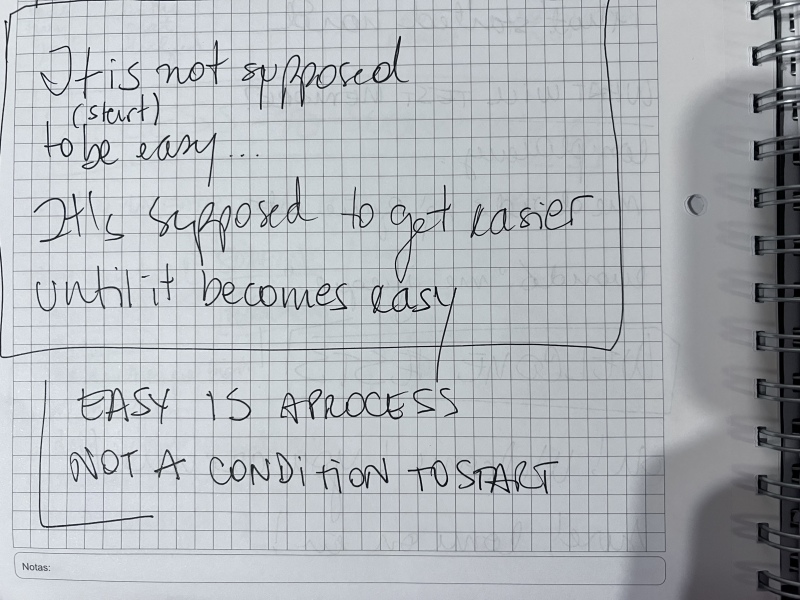 It is not supposed
(start)
to be easy...
It's supposed to get easier
until it becomes easy
EASY IS A PROCESS
NOT A CONDITION TO START
Notas: